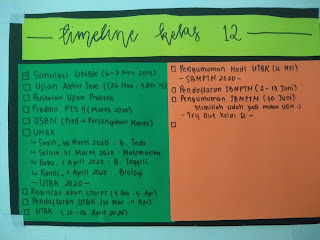 timeline kelas 12
Simulasi UNBK (4-7 Nov 2019)
Ujian Akhir Sem 1 (26 Nov - 5 Des 19)
Penilaian Ujian Praktek
Prediksi PTS B (Maret 2020)
USBN (Pred → Pertengahan Maret)
UNBK
↳ Senin, 30 Maret 2020 : B. Indo
↳ Selasa, 31 Maret 2020 : Matematika
↳ Rabu, 1 April 2020 : B. Inggris
↳ Kamis, 2 April 2020 : Biologi
- UTBK 2020 -
Registrasi akun LTMPT (7 Feb - 5 Apr)
Pendaftaran UTBK (30 Mar - 11 Apr)
UTBK (20 - 26 April 2020)
Pengumuman Hasil UTBK (12 Mei)
- SBMPTN 2020 -
Pendaftaran SBMPTN (2 - 13 Juni)
Pengumuman SBMPTN (30 Juni)
Bismillah udah jadi maba UGM :)
- Try Out Kelas 12 -